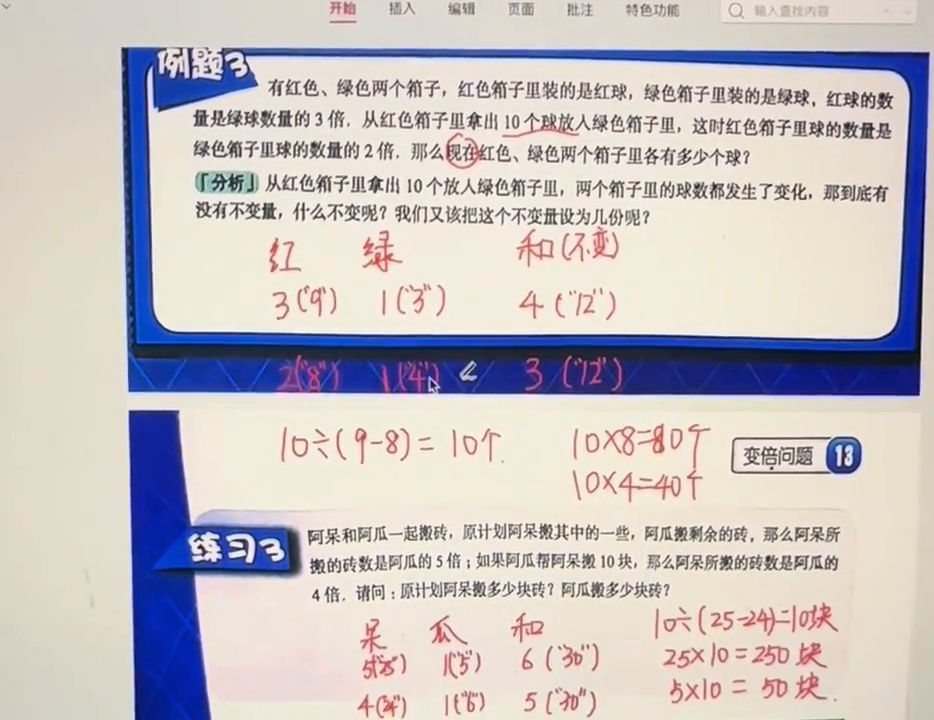 开始 插入 编辑 页面 批注 特色功能 输入查找内容
例题3
有红色、绿色两个箱子，红色箱子里装的是红球，绿色箱子里装的是绿球，红球的数
量是绿球数量的3倍．从红色箱子里拿出10个球放入绿色箱子里，这时红色箱子里球的数量是
绿色箱子里球的数量的2倍．那么现在红色、绿色两个箱子里各有多少个球？
「分析」从红色箱子里拿出10个放入绿色箱子里，两个箱子里的球数都发生了变化，那到底有
没有不变量，什么不变呢？我们又该把这个不变量设为几份呢？
红 绿 和(不变)
3("9") 1("3") 4("12")
2("8") 1("4") 3("12")
10÷(9-8)=10个.
10×8=80个
10×4=40个
变倍问题 13
练习3
阿呆和阿瓜一起搬砖，原计划阿呆搬其中的一些，阿瓜搬剩余的砖，那么阿呆所
搬的砖数是阿瓜的5倍；如果阿瓜帮阿呆搬10块，那么阿呆所搬的砖数是阿瓜的
4倍．请问：原计划阿呆搬多少块砖？阿瓜搬多少块砖？
呆 瓜 和
5("25") 1("5") 6("30")
4("24") 1("6") 5("30")
10÷(25-24)=10块
25×10=250块
5×10=50块.